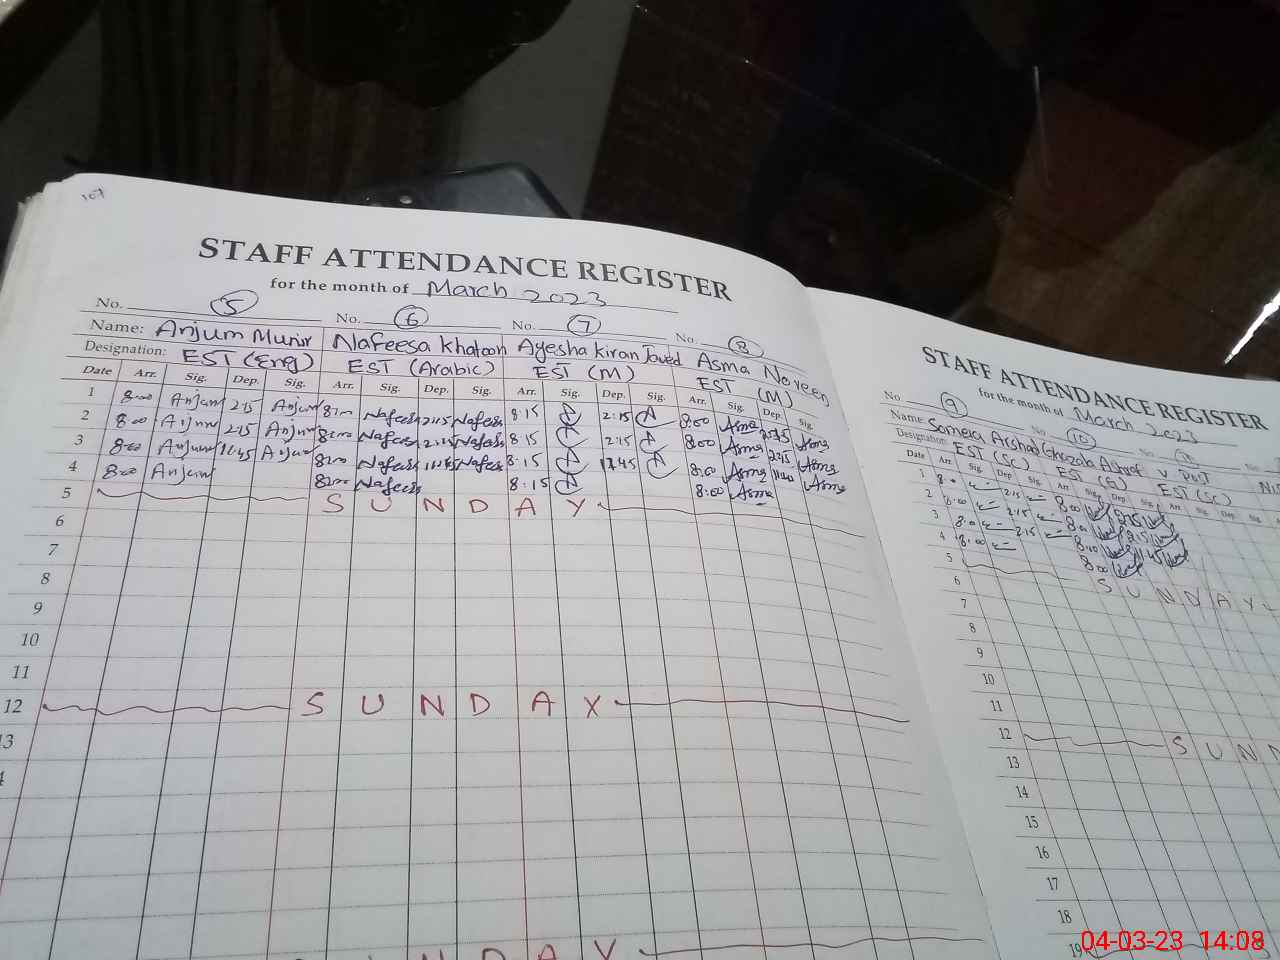 107
STAFF ATTENDANCE REGISTER
for the month of March 2023
No. 5 No. 6 No. 7 No. 8
Name: Anjum Munir Nafeesa Khatoon Ayesha kiran Javed Asma Noreen
Designation: EST (Eng) EST (Arabic) EST (M) EST (M)
Date Arr. Sig. Dep. Sig. Arr. Sig. Dep. Sig. Arr. Sig. Dep. Sig. Arr. Sig. Dep. Sig.
1 8:00 Anjum 2:15 Anjum 8:00 Nafeesa 2:15 Nafeesa 8:15 2:15 8:00 Asma 2:15 Asma
2 8:00 Anjum 2:15 Anjum 8:00 Nafeesa 2:15 Nafeesa 8:15 2:15 8:00 Asma 2:15 Asma
3 8:00 Anjum 11:45 Anjum 8:00 Nafeesa 11:45 Nafeesa 8:15 11:45 8:00 Asma 11:40 Asma
4 8:00 Anjum 8:00 Nafeesa 8:15 8:00 Asma
5 SUNDAY
6
7
8
9
10
11
12 SUNDAY
13
4
NDAY
STAFF ATTENDANCE REGISTER
for the month of March 2023
No. 9 No. 10 No.
Name Someia Arshad Ghazala Ashraf
Designation: EST (SC) EST (SC)
Date Arr. Sig. Dep. Sig. Arr. Sig. Dep. Sig. Arr. Sig. Dep. Sig.
1 8:00 2:15 8:00 2:15
2 8:00 2:15 8:00 2:15
3 8:00 2:15 8:00 11:45
4 8:00 8:00
5 SUNDAY
6
7
8
9
10
11
12 SUN
13
14
15
16
17
18
19
04-03-23 14:08